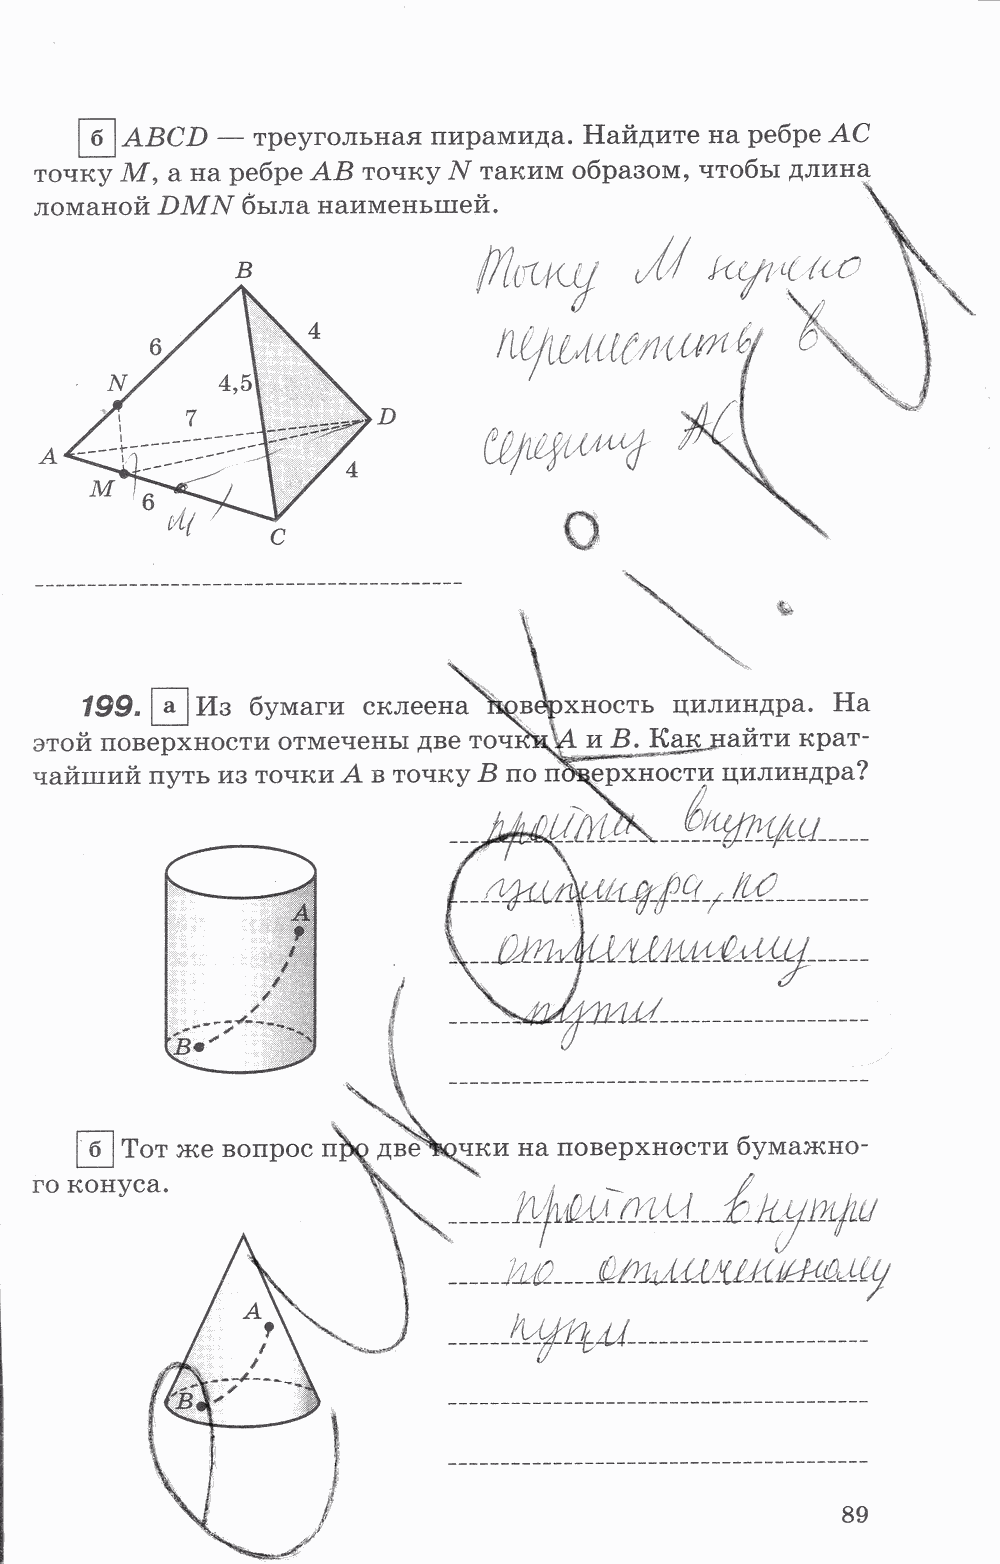 б ABCD — треугольная пирамида. Найдите на ребре AC
точку M, а на ребре AB точку N таким образом, чтобы длина
ломаной DMN была наименьшей.
B
6
4
N
4,5
7
D
A
M
6
4
M
C
Точку M нужно
переместить в
середину AC
199. а Из бумаги склеена поверхность цилиндра. На
этой поверхности отмечены две точки A и B. Как найти крат-
чайший путь из точки A в точку B по поверхности цилиндра?
A
B
пройти внутри
цилиндра, по
отмеченному
пути
б Тот же вопрос про две точки на поверхности бумажно-
го конуса.
A
B
пройти внутри
по отмеченному
пути
89